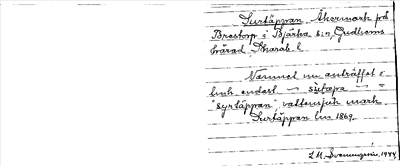 Surtäppan, Åkermark på
Brostorp i Bjärka s:n, Gudhems
härad, Skarab. l.
Namnet nu anträffat
endast
"syrtäppan", vattensjuk mark
Surtäppan Lm 1869.
1944